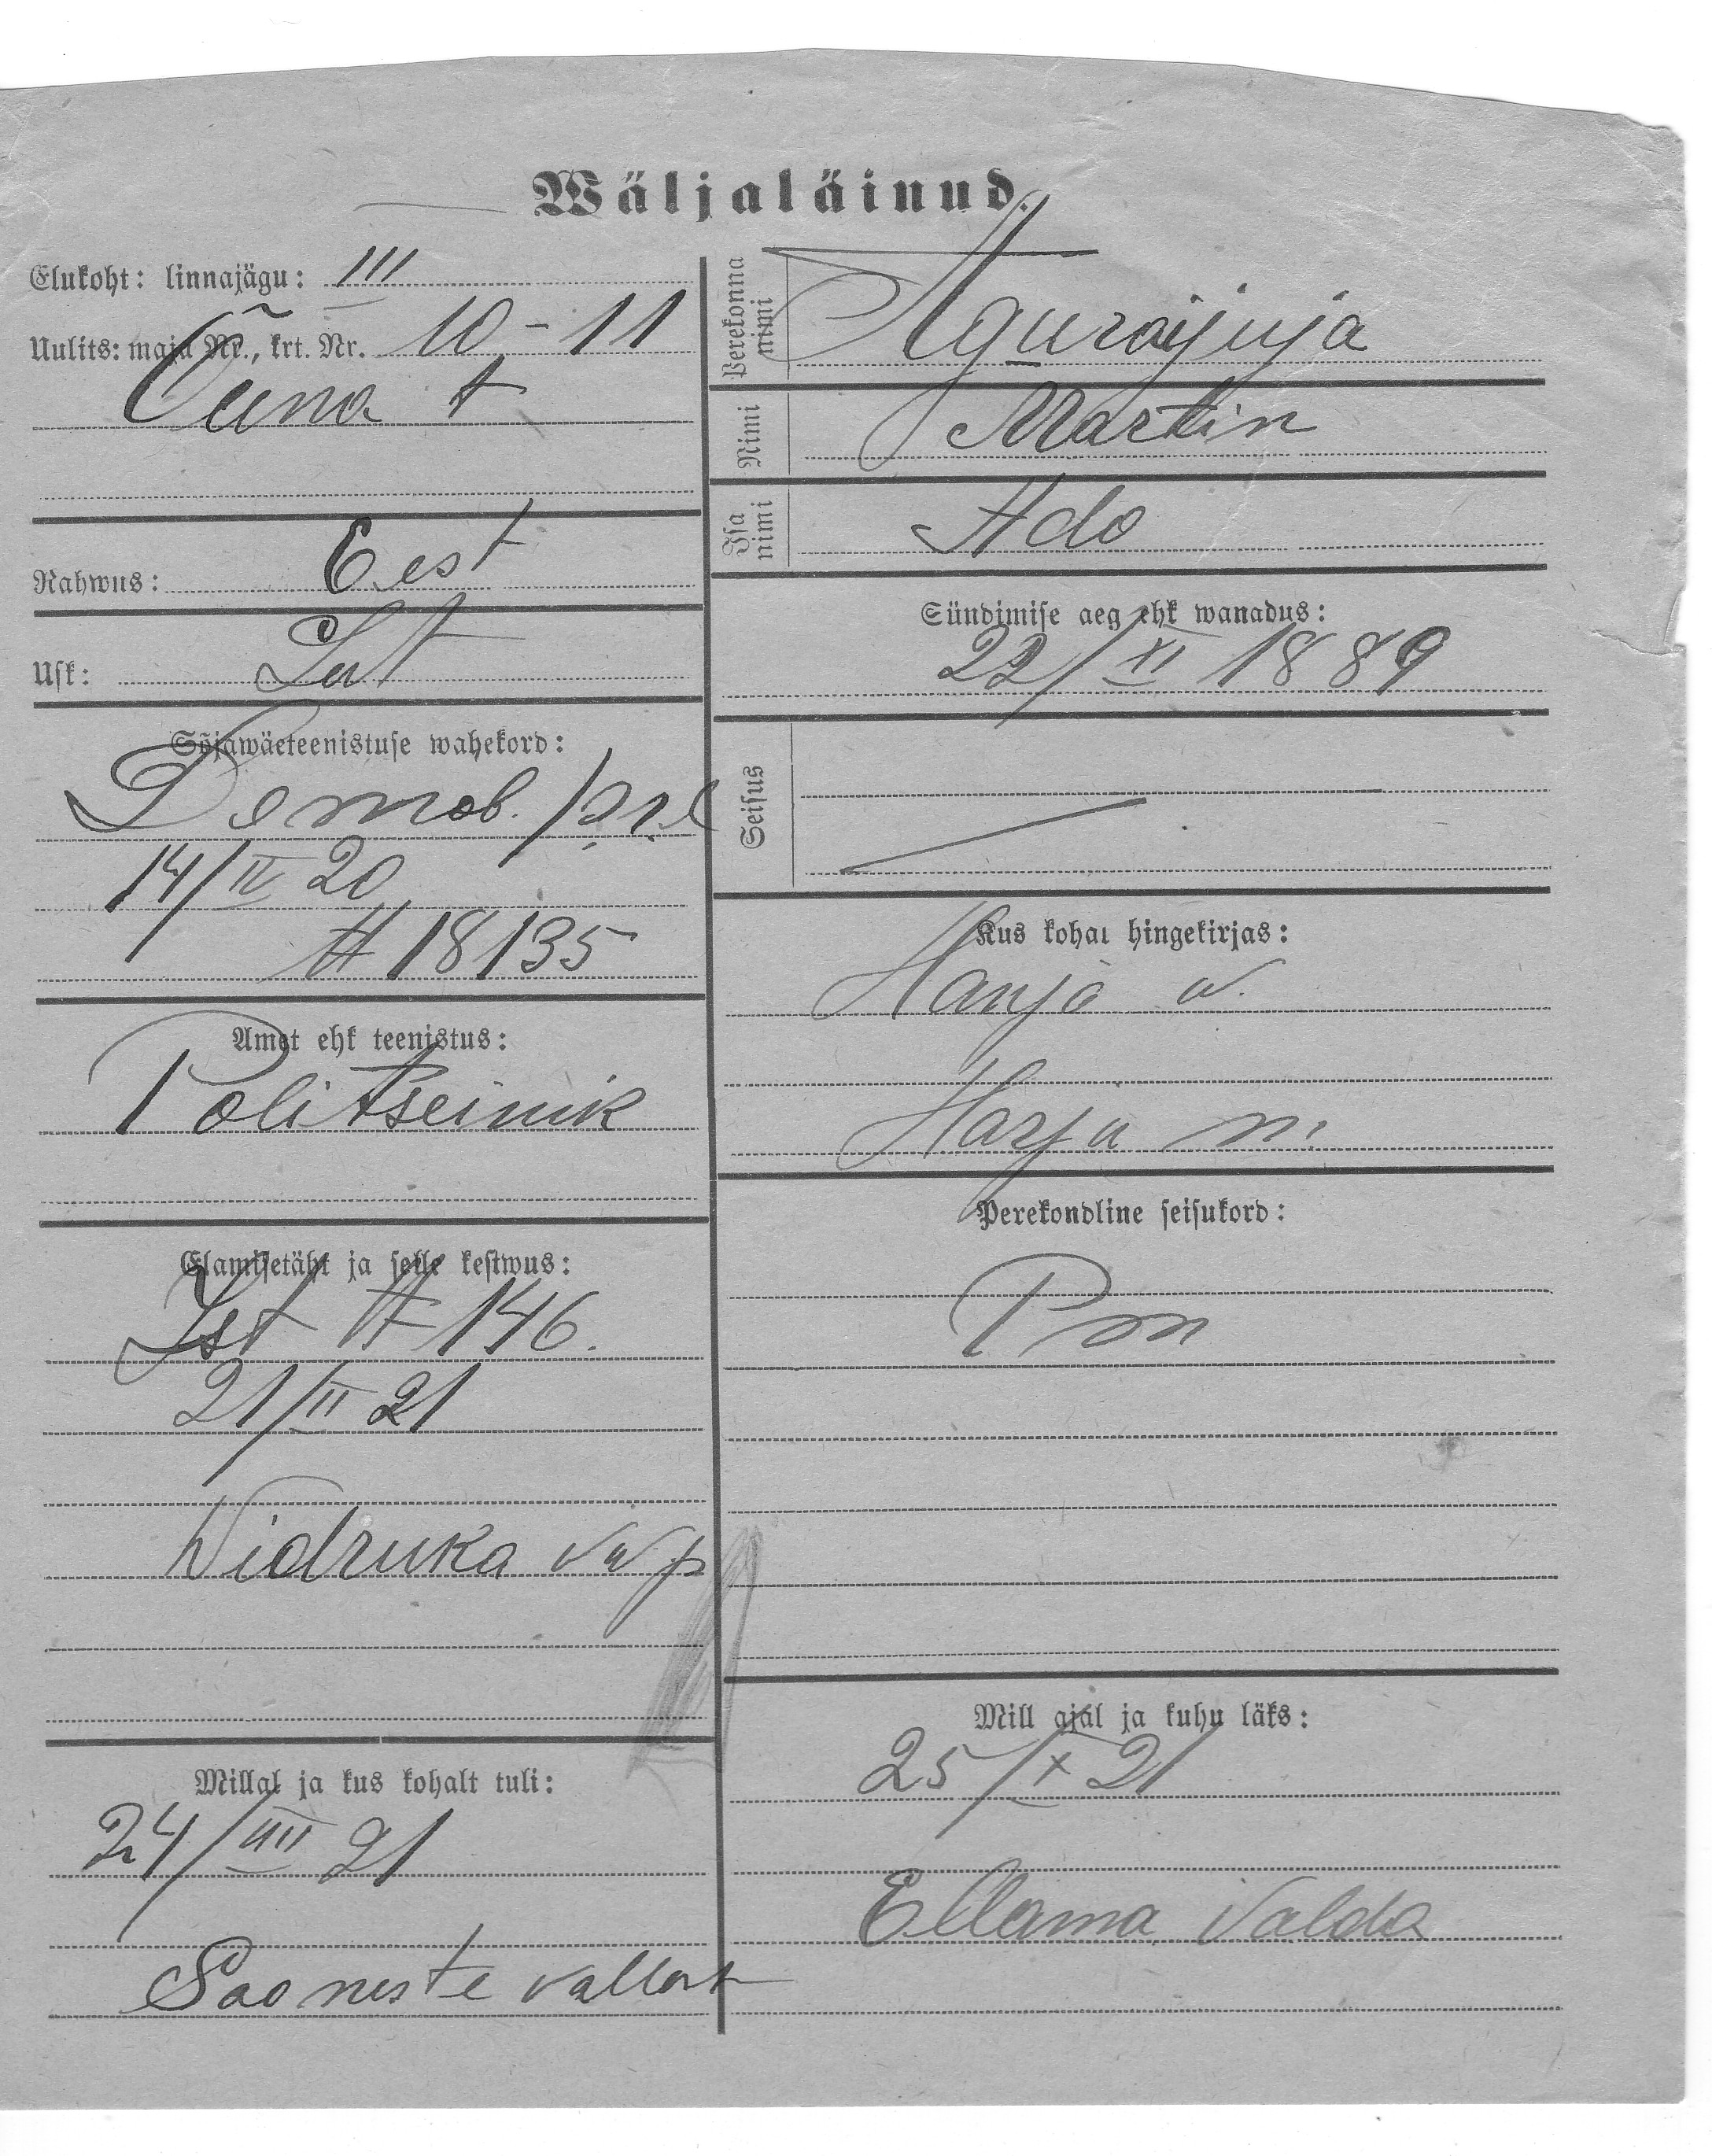 Wäljaläinud.
Elukoht: linnajägu: III
Uulits: maja Nr., krt. Nr. 10-11
Õuna t
Rahwus: Eest
Usk: Lut
Sõjawäeteenistuse wahekord:
Demob.
14/IV 20
# 18135
Amet ehk teenistus:
Politseinik
Elamisetäht ja selle kestwus:
Ist # 146.
21/II 21
Widruka
Millal ja kus kohalt tuli:
24/VIII 21
vallast
Perekonna nimi
Nimi Martin
Isa nimi Ado
Sündimise aeg ehk wanadus:
22/XI 1889
Seisus
Kus kohal hingekirjas:
w.
Harju m.
Perekondline seisukord:
Pm
Mill ajal ja kuhu läks:
25/X 21
Ellama valda